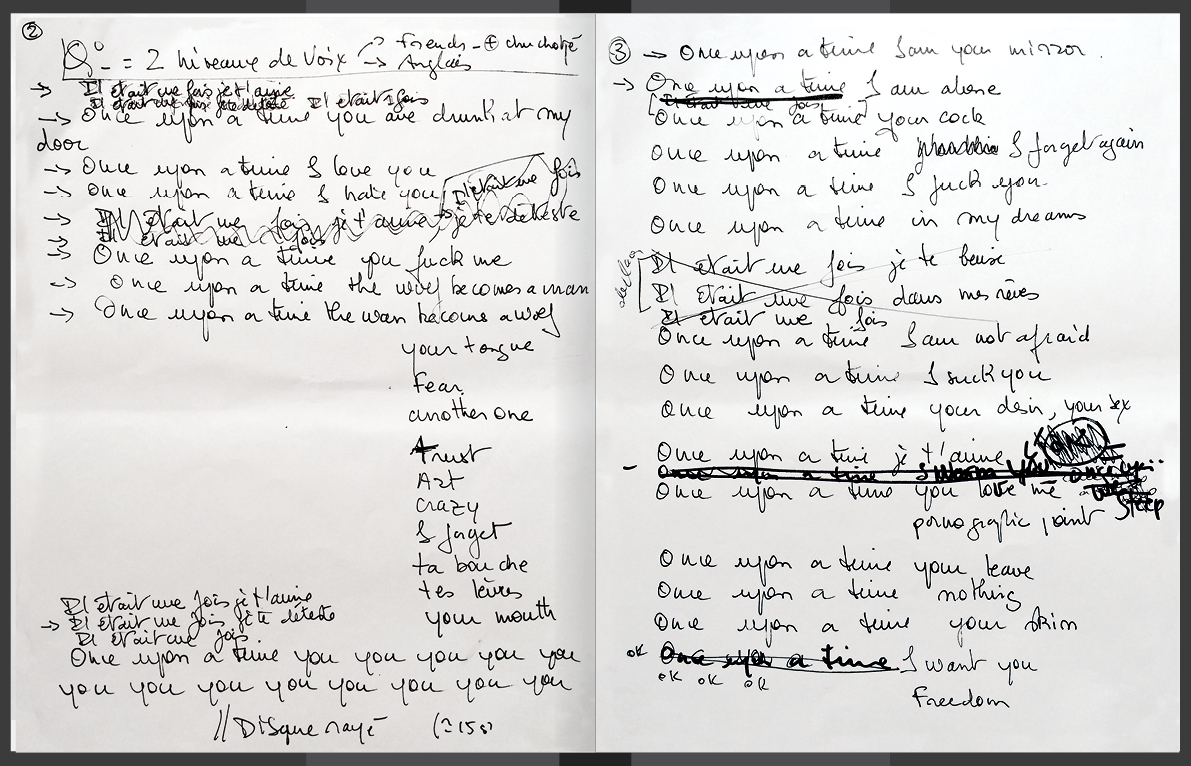 ②
= 2 niveaux de Voix → French - ⊕ chuchoté
→ Anglais
→ Il était une fois je t'aime
Il était une fois je te déteste Il était 1 fois
→ Once upon a time you are drunk at my
door
→ Once upon a time I love you
→ Once upon a time I hate you Il était une fois
→ Il était une fois je t'aime → je te déteste
→ Il était une fois
→ Once upon a time you fuck me
→ Once upon a time the wolf becomes a man
→ Once upon a time the man become a wolf
your tongue
Fear
another one
Trust
Art
crazy
I forget
ta bouche
tes lèvres
your mouth
Il était une fois je t'aime
→ Il était une fois je te déteste
Il était une fois.
Once upon a time you you you you you
you you you you you you you you
// Disque rayé (≈15s)
③ → Once upon a time I am your mirror.
→ Once upon a time I am alone
Il était une fois
Once upon a time your cock
Once upon a time I forget again
Once upon a time I fuck you.
Once upon a time in my dreams
Il était une fois je te baise
Il était une fois dans mes rêves
Il était une fois
Once upon a time I am not afraid
Once upon a time I suck you
Once upon a time your desir, your sex
Once upon a time je t'aime
Once upon a time I you
Once upon a time you love me
Stop
pornographic joint
Once upon a time your leave
Once upon a time nothing
Once upon a time your skin
OK Once upon a time I want you
OK OK OK
Freedom